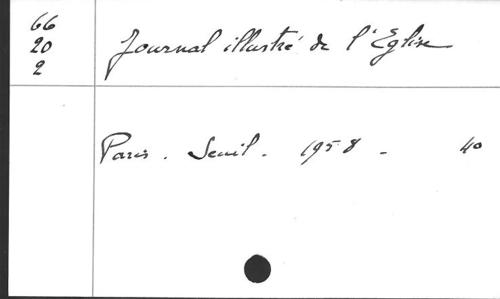 66
20
2
Journal illustré de l'Eglise
Paris. Seuil. 1958 - 4°